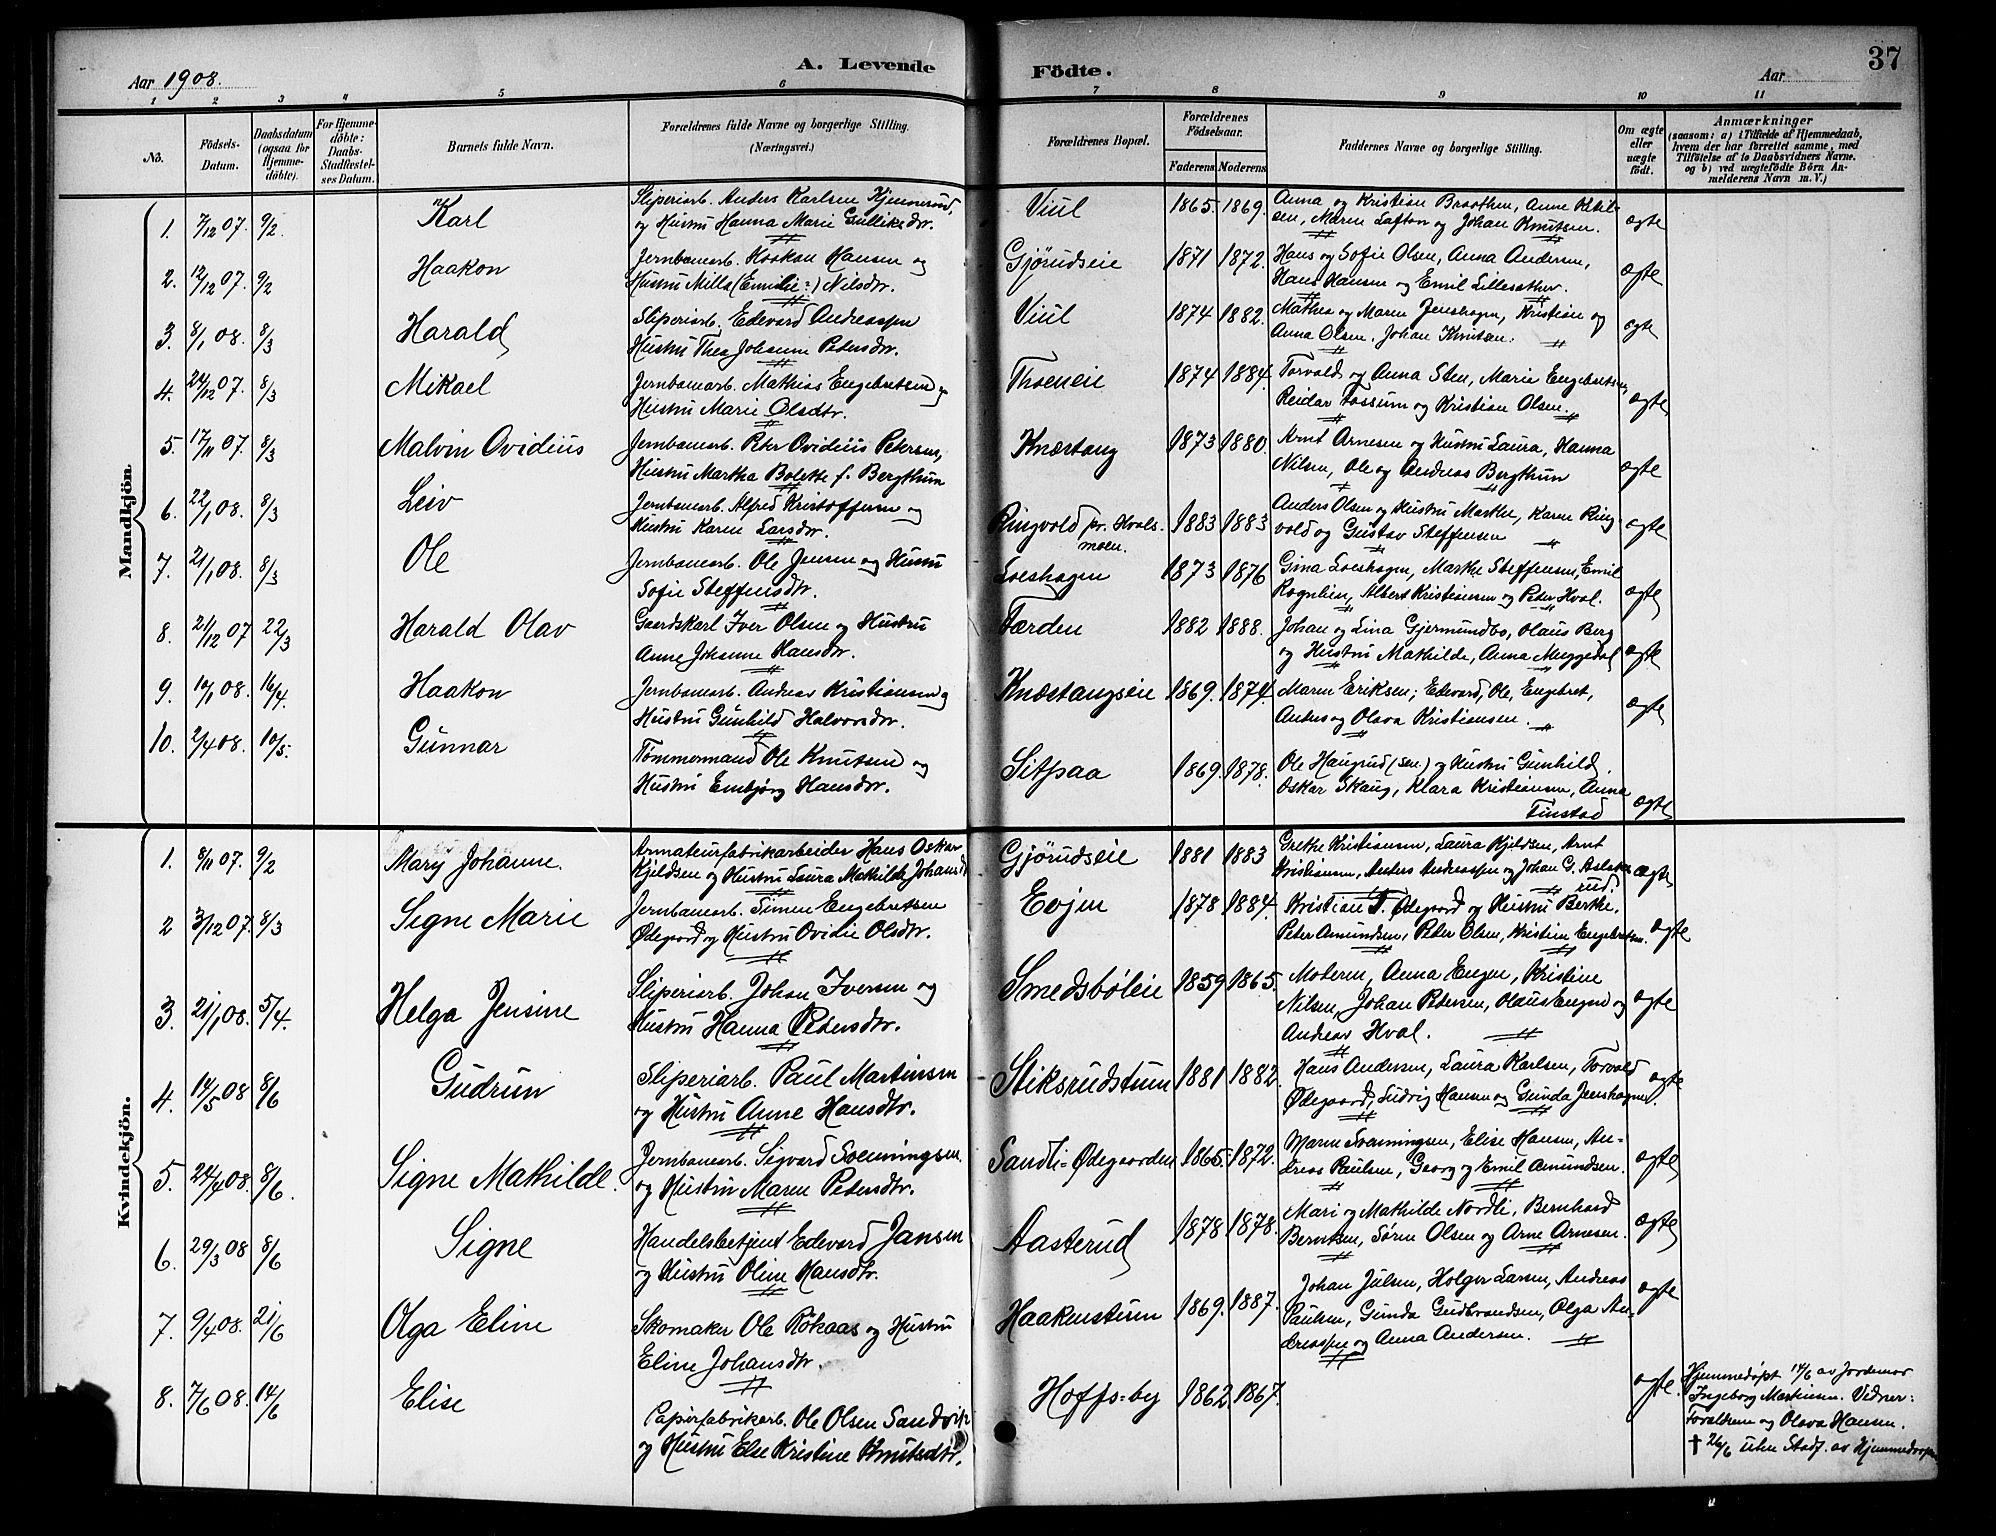 Aar 1908.
A. Levende Födte.
Aar
37
1 2 3 4 5 6 7 8 9 10 11
No.
Födsels-Datum.
Daabsdatum (ogsaa for Hjemme-döbte).
For Hjemme-döbte: Daabs-Stadfæstel-ses Datum.
Barnets fulde Navn.
Forældrenes fulde Navne og borgerlige Stilling. (Næringsvei.)
Forældrenes Bopæl.
Forældrenes Födselsaar.
Faderens Moderens
Faddernes Navne og borgerlige Stilling.
Om ægte eller uægte födt.
Anmærkninger
(saasom: a) i Tilfælde af Hjemmedaab, hvem der har forrettet samme, med Tilföielse af to Daabsvidners Navne. og b) ved uægtefödte Börn An-melderens Navn m. V.)
Mandkjön.
1. 7/12 07. 9/2. Karl Sliperiarb. Anders Karlsen Hjemmerud, Viul 1865. 1869. Anna og Kristian Braathen, Anne Ketil-
og Hustru Hanna Marie Gulliksdtr. sen, Maren Lafton og Johan Knutsen. ægte
2. 12/12 07. 9/2 Haakon Jernbanearb. Haakon Hansen og Gjørudseie 1871 1872. Hans og Sofie Olsen, Anna Andersen,
Hustru Milla (Emilie?) Nilsdtr. Hans Hansen og Emil Lillesæther. ægte
3. 8/1 08. 8/3 Harald Sliperiarb. Edevard Andreassen Viul 1874 1882. Mathea og Maren Jenshagen, Kristian og
Hustru Thea Johanne Petersdtr. Anna Olsen, Johan Knutsen. ægte
4. 24/12 07. 8/3 Mikael Jernbanearb. Mathias Engebretsen og Thoeneie 1874 1884. Torvald og Anna Sten, Marie Engebretsen,
Hustru Marie Olsdtr. Reidar Fossum og Kristian Olsen. ægte
5. 17/11 07. 8/3 Malvin Ovidius Jernbanearb. Peter Ovidius Petersen, Knæstang 1873 1880. Arnt Arnesen og Hustru Laura, Hanna
Hustru Martha Bolette f. Bergthun Nilsen, Ole og Andreas Bergthun ægte
6. 22/1 08. 8/3 Leiv Jernbanearb. Alfred Kristoffersen og Ringvold pr. Hvals-moen. 1883 1883 Anders Olsen og Hustru Marthe, Karen Ring-
Hustru Karen Larsdtr. vold og Gustav Steffensen ægte
7. 21/1 08. 8/3 Ole Jernbanearb. Ole Jensen og Hustru Loeshagen 1873 1876 Gina Loeshagen, Marthe Steffensen, Emil
Sofie Steffensdtr. Rognlien, Albert Kristiansen og Peter Hval. ægte
8. 21/12 07 22/3 Harald Olav Gaardskarl Iver Olsen og Hustru Færden 1882 1888. Johan og Lina Gjermundbo, Olaus Berg
Anne Johanne Hansdtr. og Hustru Mathilde, Anna Muggedal ægte
9. 10/1 08. 16/4. Haakon Jernbanearb. Andreas Kristiansen og Knæstangseie 1869. 1874. Maren Eriksen; Edevard, Ole, Engebret,
Hustru Gunhild Halvorsdtr. Anders og Olava Kristiansen. ægte
10. 2/4 08. 10/5. Gunnar Tømmermand Ole Knutsen og Sitpaa 1869. 1878. Ole Haugrud (sen.) og Hustru Gunhild,
Hustru Embjørg Hansdtr. Oskar Skaug, Klara Kristiansen, Anna
Finstad ægte
Kvindekjön.
1. 8/11 07. 9/2 Mary Johanne. Armaturfabrikarbeider Hans Oskar Gjørudseie 1881 1883 Grethe Kristiansen, Laura Kjeldsen, Arnt
Kjeldsen og Hustru Laura Mathilde Johansd. Kristiansen, Anders Andreassen og Johan G. Aslaks-rud. ægte
2 3/12 07. 8/3 Signe Marie Jernbanearb. Simen Engebretsen Evjen 1878 1884. Kristian T. Ødegaard og Hustru Berthe.
Ødegaard og Hustru Ovidie Olsdtr. Peter Amundsen, Peter Olsen, Kristian Engebretsen. ægte
3. 21/1 08. 5/4. Helga Jensine Sliperiarb. Johan Iversen og Smedsbøleie 1859 1865. Moderen, Anna Engen, Kristine
Hustru Hanna Petersdtr. Nilsen, Johan Petersen, Olaus Engen og
Andreas Hval. ægte
4. 14/5 08 8/6 Gudrun Sliperiarb. Paul Martinsen Stiksrudstum 1881 1882. Hans Andersen, Laura Karlsen, Torvald
og Hustru Anne Hansdtr. Ødegaard, Ludvig Hansen og Gunda Jenshagen. ægte
5. 24/4 08. 8/6. Signe Mathilde. Jernbanearb. Sigvard Svenningsen Sandli-Ødegaarden 1865. 1872. Maren Svenningsen, Elise Hansen, An-
og Hustru Maren Petersdtr. dreas Paulsen, Georg og Emil Amundsen. ægte
6. 29/3 08 8/6 Signe Handelsbetjent Edevard Jansen Aasterud 1878 1878. Mari og Mathilde Nordli, Bernhard
og Hustru Oline Hansdtr. Berntsen, Søren Olsen og Arne Arnesen. ægte
7. 9/4 08. 21/6 Olga Eline Skomaker Ole Røkaas og Hustru Haakenstum 1869. 1887. Johan Julsen, Holger Larsen, Andreas
Eline Johansdtr. Paulsen, Gunda Gudbrandsen, Olga An-
dreassen og Anna Andersen. ægte
8. 7/6 08. 14/6 Elise Papirfabrikarb. Ole Olsen Sandvik Hoffs-by 1862 1867. ægte. Hjemmedøpt 14/6 av Jordemor
og Hustru Else Kristine Knutsdtr. Ingeborg Martinsen. Vidner:
Forældrene og Olava Hansen.
† 26/6 uten Stadf. av Hjemmedaapen